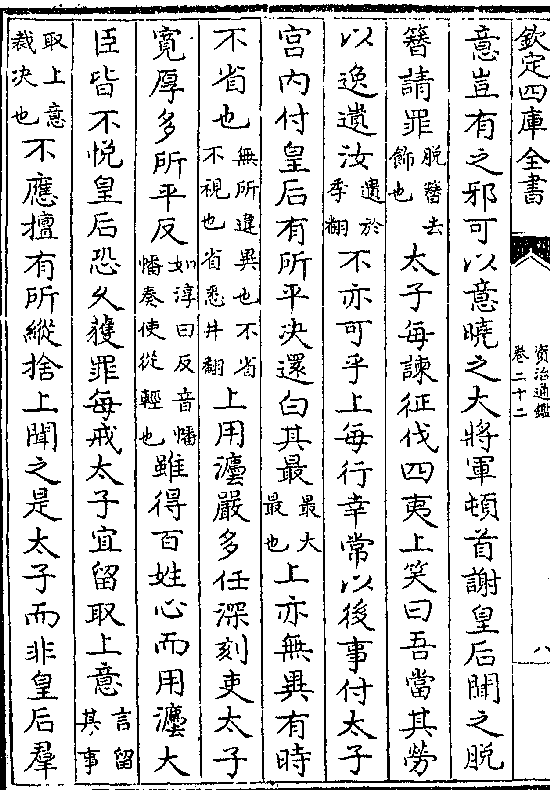 欽定四庫全書
資治通鑑
卷二十二
八
意豈有之邪可以意曉之大將軍頓首謝皇后聞之脫
簪請罪脫簪去飾也太子每諫征伐四夷上笑曰吾當其勞
以逸遺汝遺於季翻不亦可乎上每行幸常以後事付太子
宮內付皇后有所平决還白其最最大最也上亦無異有時
不省也無所違異也不省不視也省悉井翻上用灋嚴多任深刻吏太子
寛厚多所平反如淳曰反音幡幡奏使從輕也雖得百姓心而用灋大
臣皆不悦皇后恐久獲罪每戒太子宜留取上意言留其事
取上意裁决也不應擅有所縱捨上聞之是太子而非皇后羣